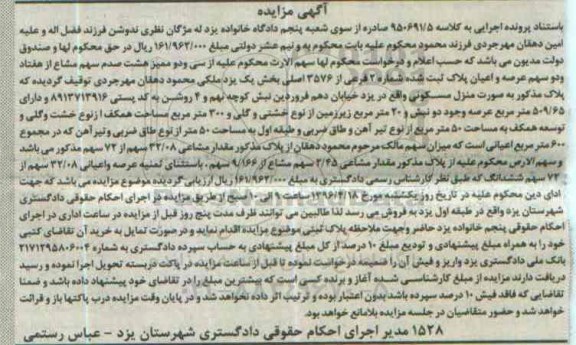 آگهی مزایده
باستناد پرونده اجرایی به کلاسه ۹۵۰۶۹۱/۵ صادره از سوی شعبه پنجم دادگاه خانواده یزد له مژگان نظری ندوشن فرزند فضل اله و علیه
امین دهقان مهرجردی فرزند محمود محکوم علیه بابت محکوم به و نیم عشر دولتی مبلغ ۱۶۱/۹۶۲/۰۰۰ ریال در حق محکوم لها و صندوق
دولت مدیون می باشد که حسب اعلام و درخواست محکوم لها سهم الارث محکوم علیه از سی ودو ممیز هشت صدم سهم مشاع از هفتاد
ودو سهم عرصه و اعیان پلاک ثبت شده شماره ۲ فرعی از ۳۵۷۶ اصلی بخش یک یزد ملکی محمود دهقان مهرجردی توقیف گردیده که
پلاک مذکور به صورت منزل مسکونی واقع در یزد خیابان دهم فروردین نبش کوچه نهم و ۴ روشنن به کد پستی ۸۹۱۳۷۱۳۹۱۶ و دارای
۵۰۹/۶۵ متر مربع عرصه وجود دو نبش و ۲۰ متر مربع زیرزمین از نوع خشتی و گلی و ۳۰۰ متر مربع مساحت همکف از نوع خشت وگلی و
توسعه همکف به مساحت ۵۰ متر مربع از نوع تیر آهن و طاق ضربی و طبقه اول به مساحت ۵۰ متر از نوع طاق ضربی وتیر آهن که در مجموع
۶۰۰ متر مربع اعیانی است که میزان سهم مالک مرحوم محمود دهقان از پلاک مذکور مقدار مشاعی ۳۲/۰۸ سهم از ۷۲ سهم مذکور می باشد
و سهم الارص محکوم علیه از پلاک مذکور مقدار مشاعی ۲/۴۵ سهم مشاع از ۹/۱۶۶ سهم ، باستثنای ثمنیه عرصه واعیانی ۳۲/۰۸ سهم از
۷۲ سهم ششدانگ که طبق نظر کارشناس رسمی دادگستری به مبلغ ۱۶۱/۹۶۲/۰۰۰ ریال ارزیابی گردیده موضوع مزایده می باشد که جهت
ادای دین محکوم علیه در تاریخ روز یکشنبه مورخ ساعت الی صبح از طریق مزایده در اجرای احکام حقوقی دادگستری
شهرستان یزد واقع در طبقه اول یزد به فروش می رسد لذا طالبین می توانند ظرف مدت پنج روز قبل از مزایده در ساعت اداری در اجرای
احکام حقوقی پنجم خانواده یزد حاضر وجهت ملاحظه پلاک ثبتی موضوع مزایده اقدام نماید و در صورت تمایل به خرید آن تقاضای کتبی
خود را به همراه مبلغ پیشنهادی و تودیع مبلغ ۱۰ درصد از کل مبلغ پیشنهادی به حساب سپرده دادگستری به شماره ۲۱۷۱۲۹۵۸۰۶۰۰۴
بانک ملی دادگستری یزد واریز و فیش آن را ضمیمه درخواست نموده تا قبل از ساعت مزایده در پاکت دربسته تحویل اجرا نموده و رسید
دریافت دارند مزایده از مبلغ کارشناسی شده آغاز و برنده کسی است که بیشترین مبلغ را در تقاضای خود پیشنهاد داده باشد و ضمنا
تقاضایی که فاقد فیش ۱۰ درصد سپرده باشد بدون اعتبار بوده و ترتیب اثر داده نخواهد شد و در پایان وقت مزایده درب پاکتها باز و قرائت
خواهد شد و حضور متقاضیان در جلسه مزایده بلامانع خواهد بود.
۱۵۲۸ مدیر اجرای احکام حقوقی دادگستری شهرستان یزد - عباس رستمی